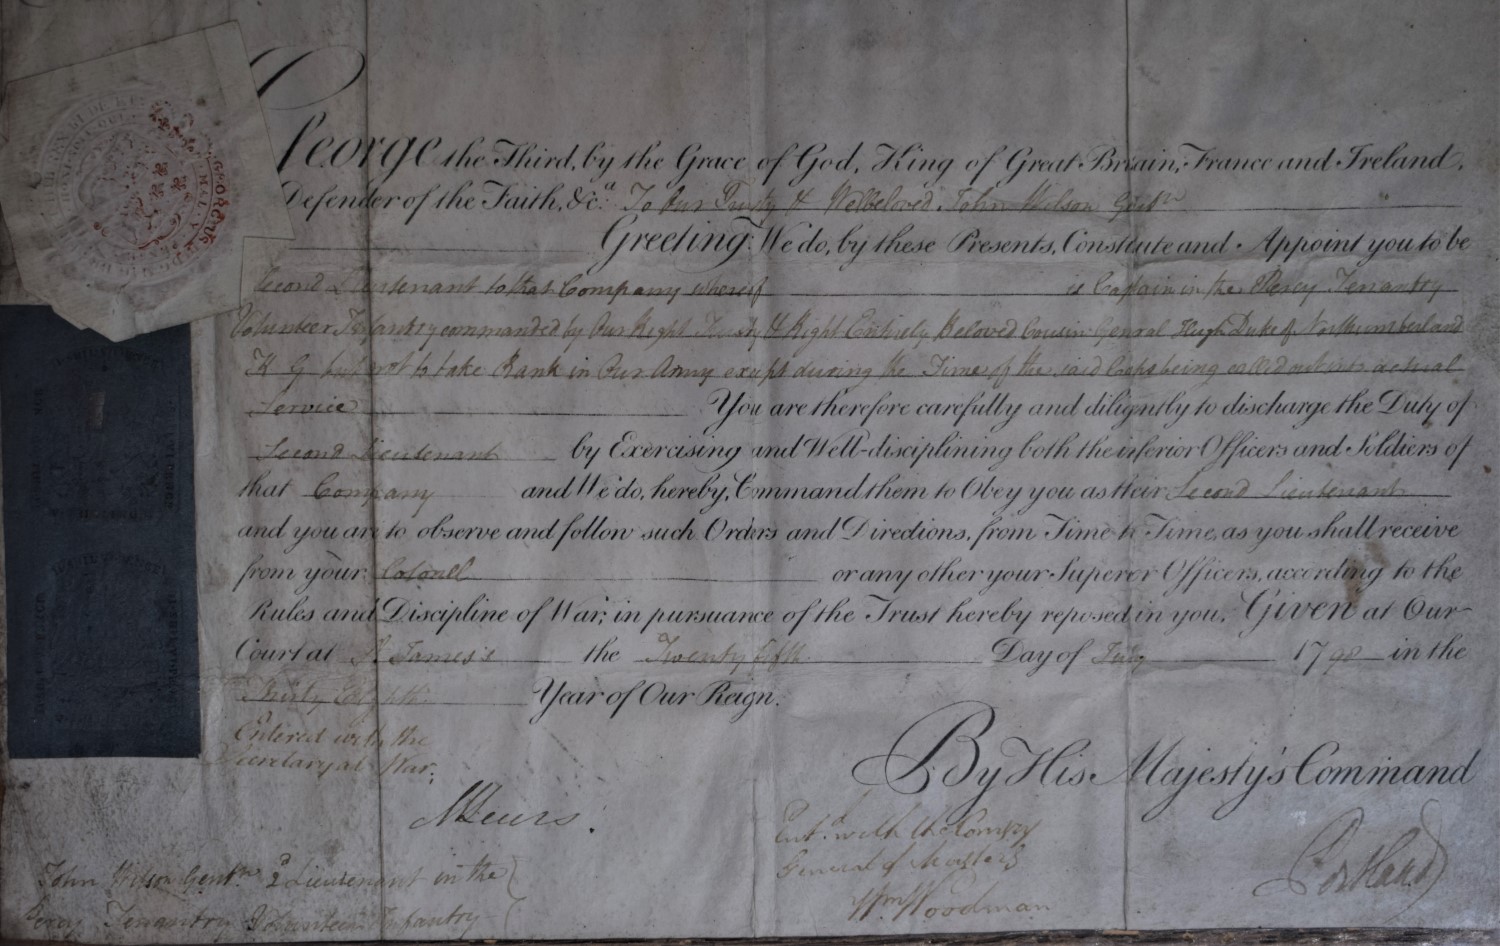 George the Third, by the Grace of God, King of Great Britain, France and Ireland,
Defender of the Faith, &c.a To Our Trusty & Welbeloved John Wilson Gentn
Greeting: We do, by these Presents, Constitute and Appoint you to be
Second Lieutenant to that Company whereof is Captain in the Percy Tenantry
Volunteer Infantry commanded by Our Right Trusty & Right Entirely Beloved Cousin General Hugh Duke of Northumberland
K G but not to take Rank in Our Army except during the Time of the said Corps being called out into actual
Service You are therefore carefully and diligently to discharge the Duty of
Second Lieutenant by Exercising and Well-disciplining both the inferior Officers and Soldiers of
that Company and We do, hereby, Command them to Obey you as their Second Lieutenant
and you are to observe and follow such Orders and Directions, from Time to Time, as you shall receive
from your Colonel or any other your Superior Officers, according to the
Rules and Discipline of War, in pursuance of the Trust hereby reposed in you. Given at Our
Court at St James's the Twenty fifth Day of July 1798 in the
Thirty Eighth Year of Our Reign.
Entered with the
Secretary at War.
By His Majesty's Command
Entd. with the Comisy
General of Musters
Wm Woodman
Portland
John Wilson Gentn 2d Lieutenant in the
Percy Tenantry Volunteer Infantry